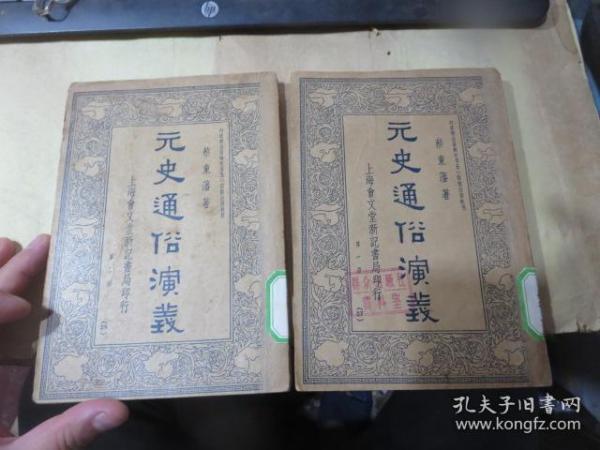 hp
蔡東藩著
元史通俗演義
上海會文堂新記書局印行
第二册
蔡東藩著
元史通俗演義
上海會文堂新記書局印行
第一册
孔夫子旧书网
www.kongfz.com